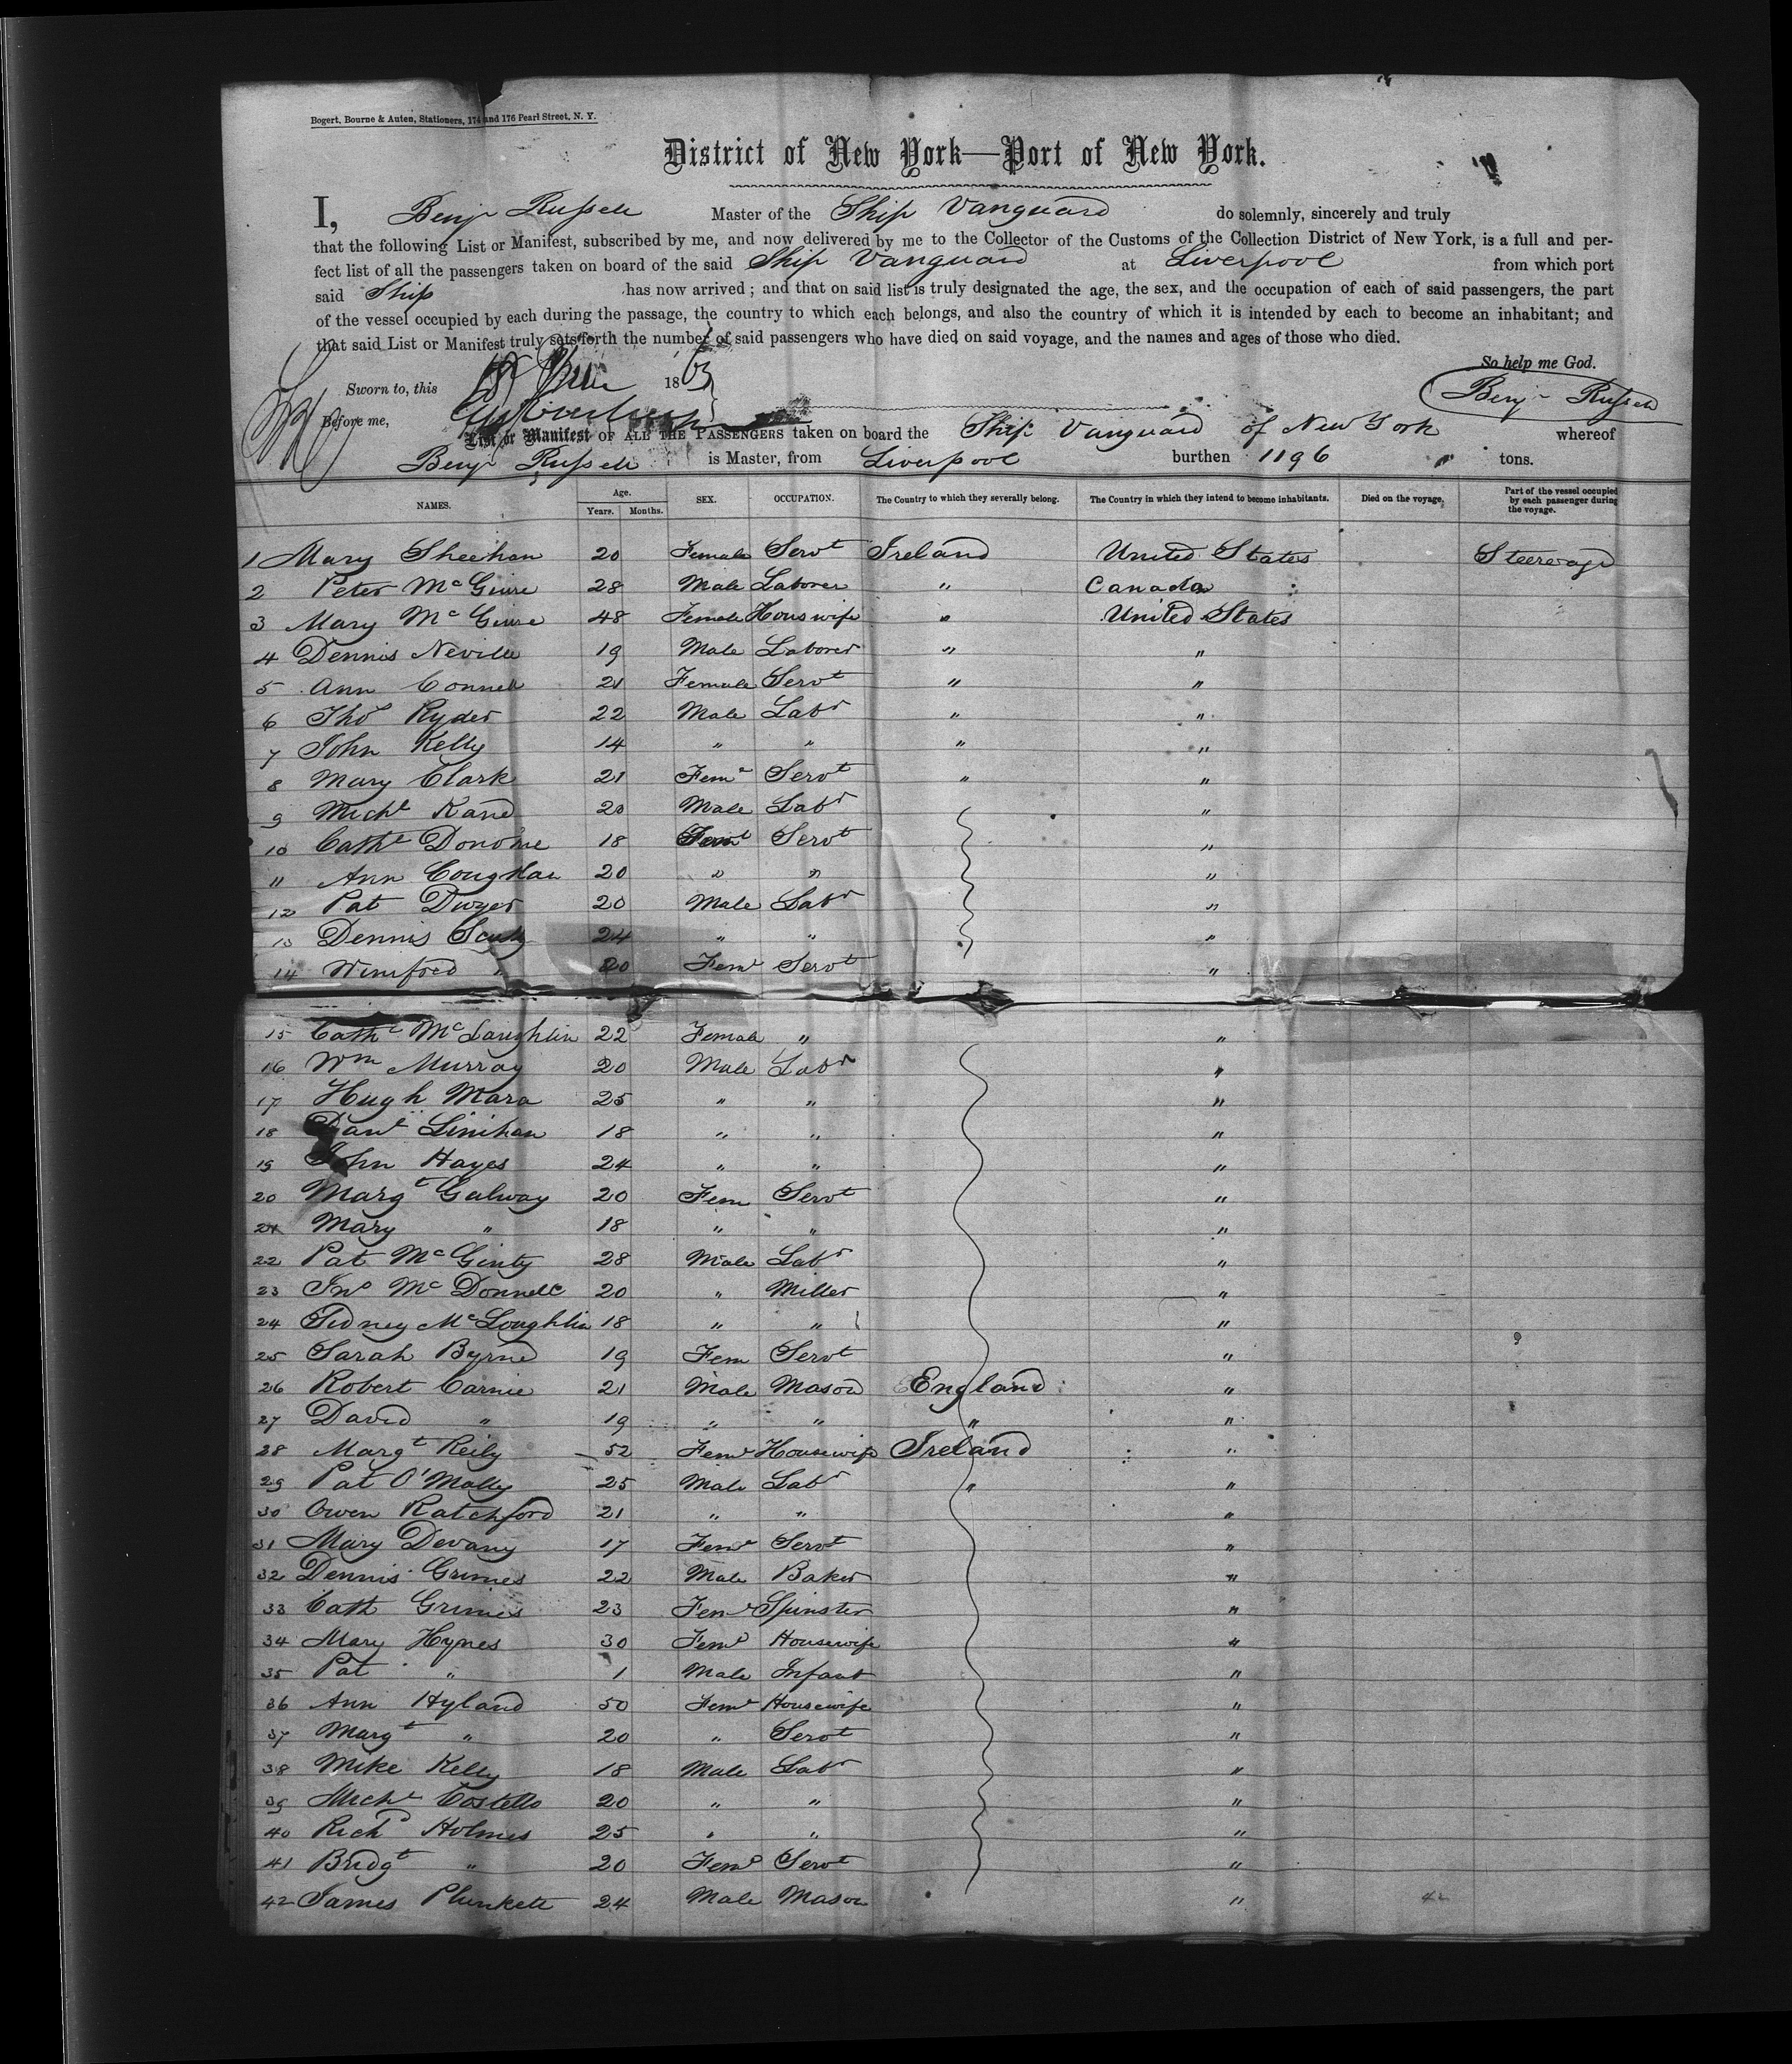 Bogert, Bourne & Auten, Stationers, 174 and 176 Pearl Street, N. Y.
District of New York—Port of New York.
I, Benj Russell Master of the Ship Vanguard do solemnly, sincerely and truly
that the following List or Manifest, subscribed by me, and now delivered by me to the Collector of the Customs of the Collection District of New York, is a full and per-
fect list of all the passengers taken on board of the said Ship Vanguard at Liverpool from which port
said Ship has now arrived; and that on said list is truly designated the age, the sex, and the occupation of each of said passengers, the part
of the vessel occupied by each during the passage, the country to which each belongs, and also the country of which it is intended by each to become an inhabitant; and
that said List or Manifest truly sets forth the number of said passengers who have died on said voyage, and the names and ages of those who died.
So help me God.
Sworn to, this 18 1863
Benj Russell
Before me,
List or Manifest OF ALL THE PASSENGERS taken on board the Ship Vanguard of New York whereof
Benj Russell is Master, from Liverpool burthen 1196 tons.
NAMES. Age. Years. Months. SEX. OCCUPATION. The Country to which they severally belong. The Country in which they intend to become inhabitants. Died on the voyage. Part of the vessel occupied by each passenger during the voyage.
1 Mary Sheehan 20 Female Servt Ireland United States Steerage
2 Peter McGuire 28 Male Laborer " Canada
3 Mary McGuire 48 Female Houswife " United States
4 Dennis Neville 19 Male Laborer " "
5 Ann Connell 21 Female Servt " "
6 Thos Ryder 22 Male Labr " "
7 John Kelly 14 " " " "
8 Mary Clark 21 Feme Servt " "
9 Michl Kane 20 Male Labr "
10 Cathe Donohue 18 Feml Servt "
11 Ann Coughlan 20 " " "
12 Pat Dwyer 20 Male Labr "
13 Dennis Scully 24 " " "
14 Winifred " 20 Feml Servt "
15 Cathe McLaughlin 22 Female " "
16 Wm Murray 20 Male Labr "
17 Hugh Mara 25 " " "
18 Danl Linihan 18 " " "
19 John Hayes 24 " " "
20 Margt Galway 20 Fem Servt "
21 Mary " 18 " " "
22 Pat McGinty 28 Male Labr "
23 Jno McDonnell 20 " Miller "
24 Sidney McLoughlin 18 " " "
25 Sarah Byrne 19 Fem Servt "
26 Robert Carnie 21 Male Mason England "
27 David " 19 " " " "
28 Margt Reily 52 Feml Housewife Ireland "
29 Pat O'Mally 25 Male Labr " "
30 Owen Ratchford 21 " " "
31 Mary Devany 17 Feme Servt "
32 Dennis Grimes 22 Male Baker "
33 Cath Grimes 23 Feme Spinster "
34 Mary Hynes 30 Feme Housewife "
35 Pat " 1 Male Infant "
36 Ann Hyland 50 Feme Housewife "
37 Margt " 20 " Servt "
38 Mike Kelly 18 Male Labr "
39 Michl Costello 20 " " "
40 Richd Holmes 25 " " "
41 Bridgt " 20 Feme Servt "
42 James Plunkett 24 Male Mason " 42